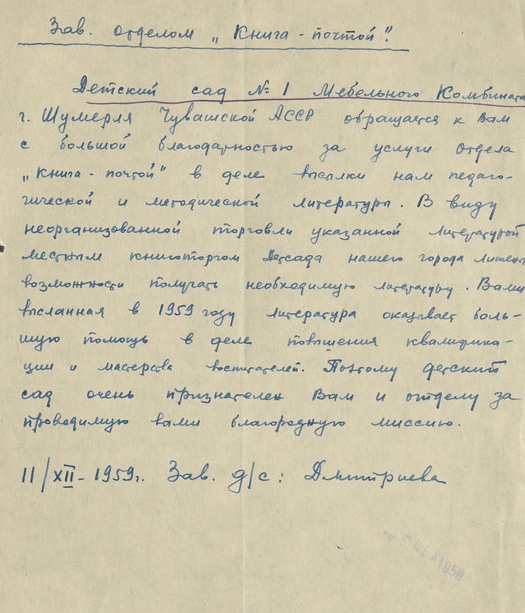 Зав. отделом „Книга - почтой".
Детский сад № 1 Мебельного Комбината
г. Шумерля Чувашской АССР обращается к Вам
с большой благодарностью за услуги отдела
„Книга - почтой" в деле высылки нам педаго-
гической и методической литературы. В виду
неорганизованной торговли указанной литературой
местным книготоргом детсада нашего города лишены
возможности получать необходимую литературу. Вами
высланная в 1959 году литература оказывает боль-
шую помощь в деле повышения квалифика-
ции и мастерства воспитателей. Поэтому детский
сад очень признателен Вам и отделу за
проводимую вами благородную миссию.
11/XII - 1959г. Зав. д/с: Дмитриева
1959